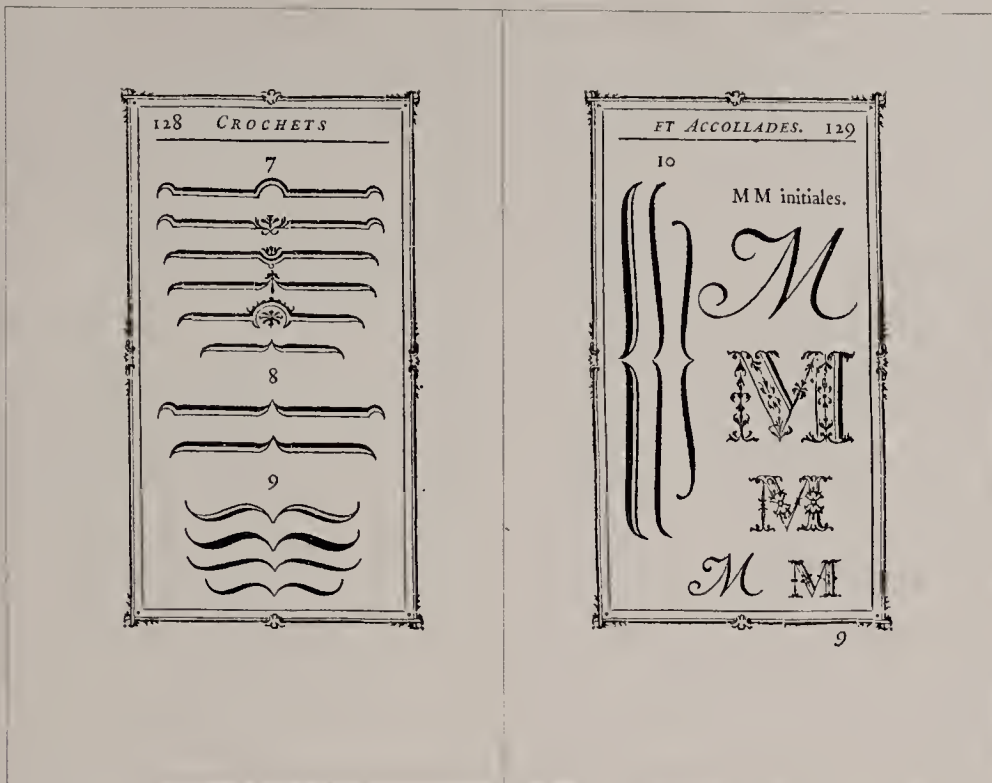 128 CROCHETS
7
8
9
ET ACCOLLADES. 129
10
M M initiales.
M
M
M
M M
9